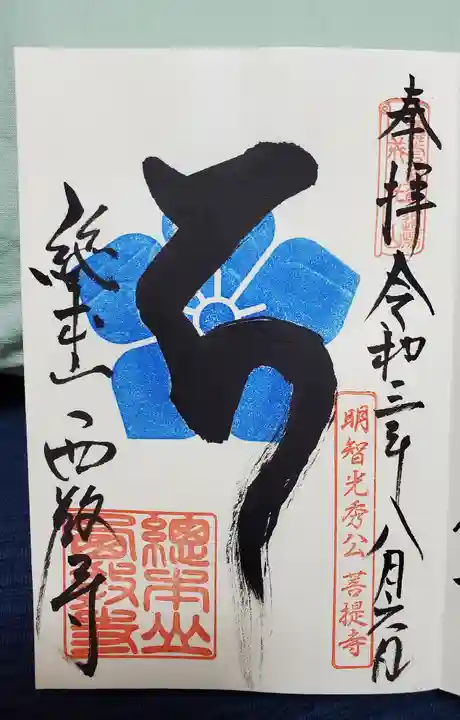 奉拝
令和三年八月六日
明智光秀公 菩提寺
総本山 西教寺
總本山
西教寺